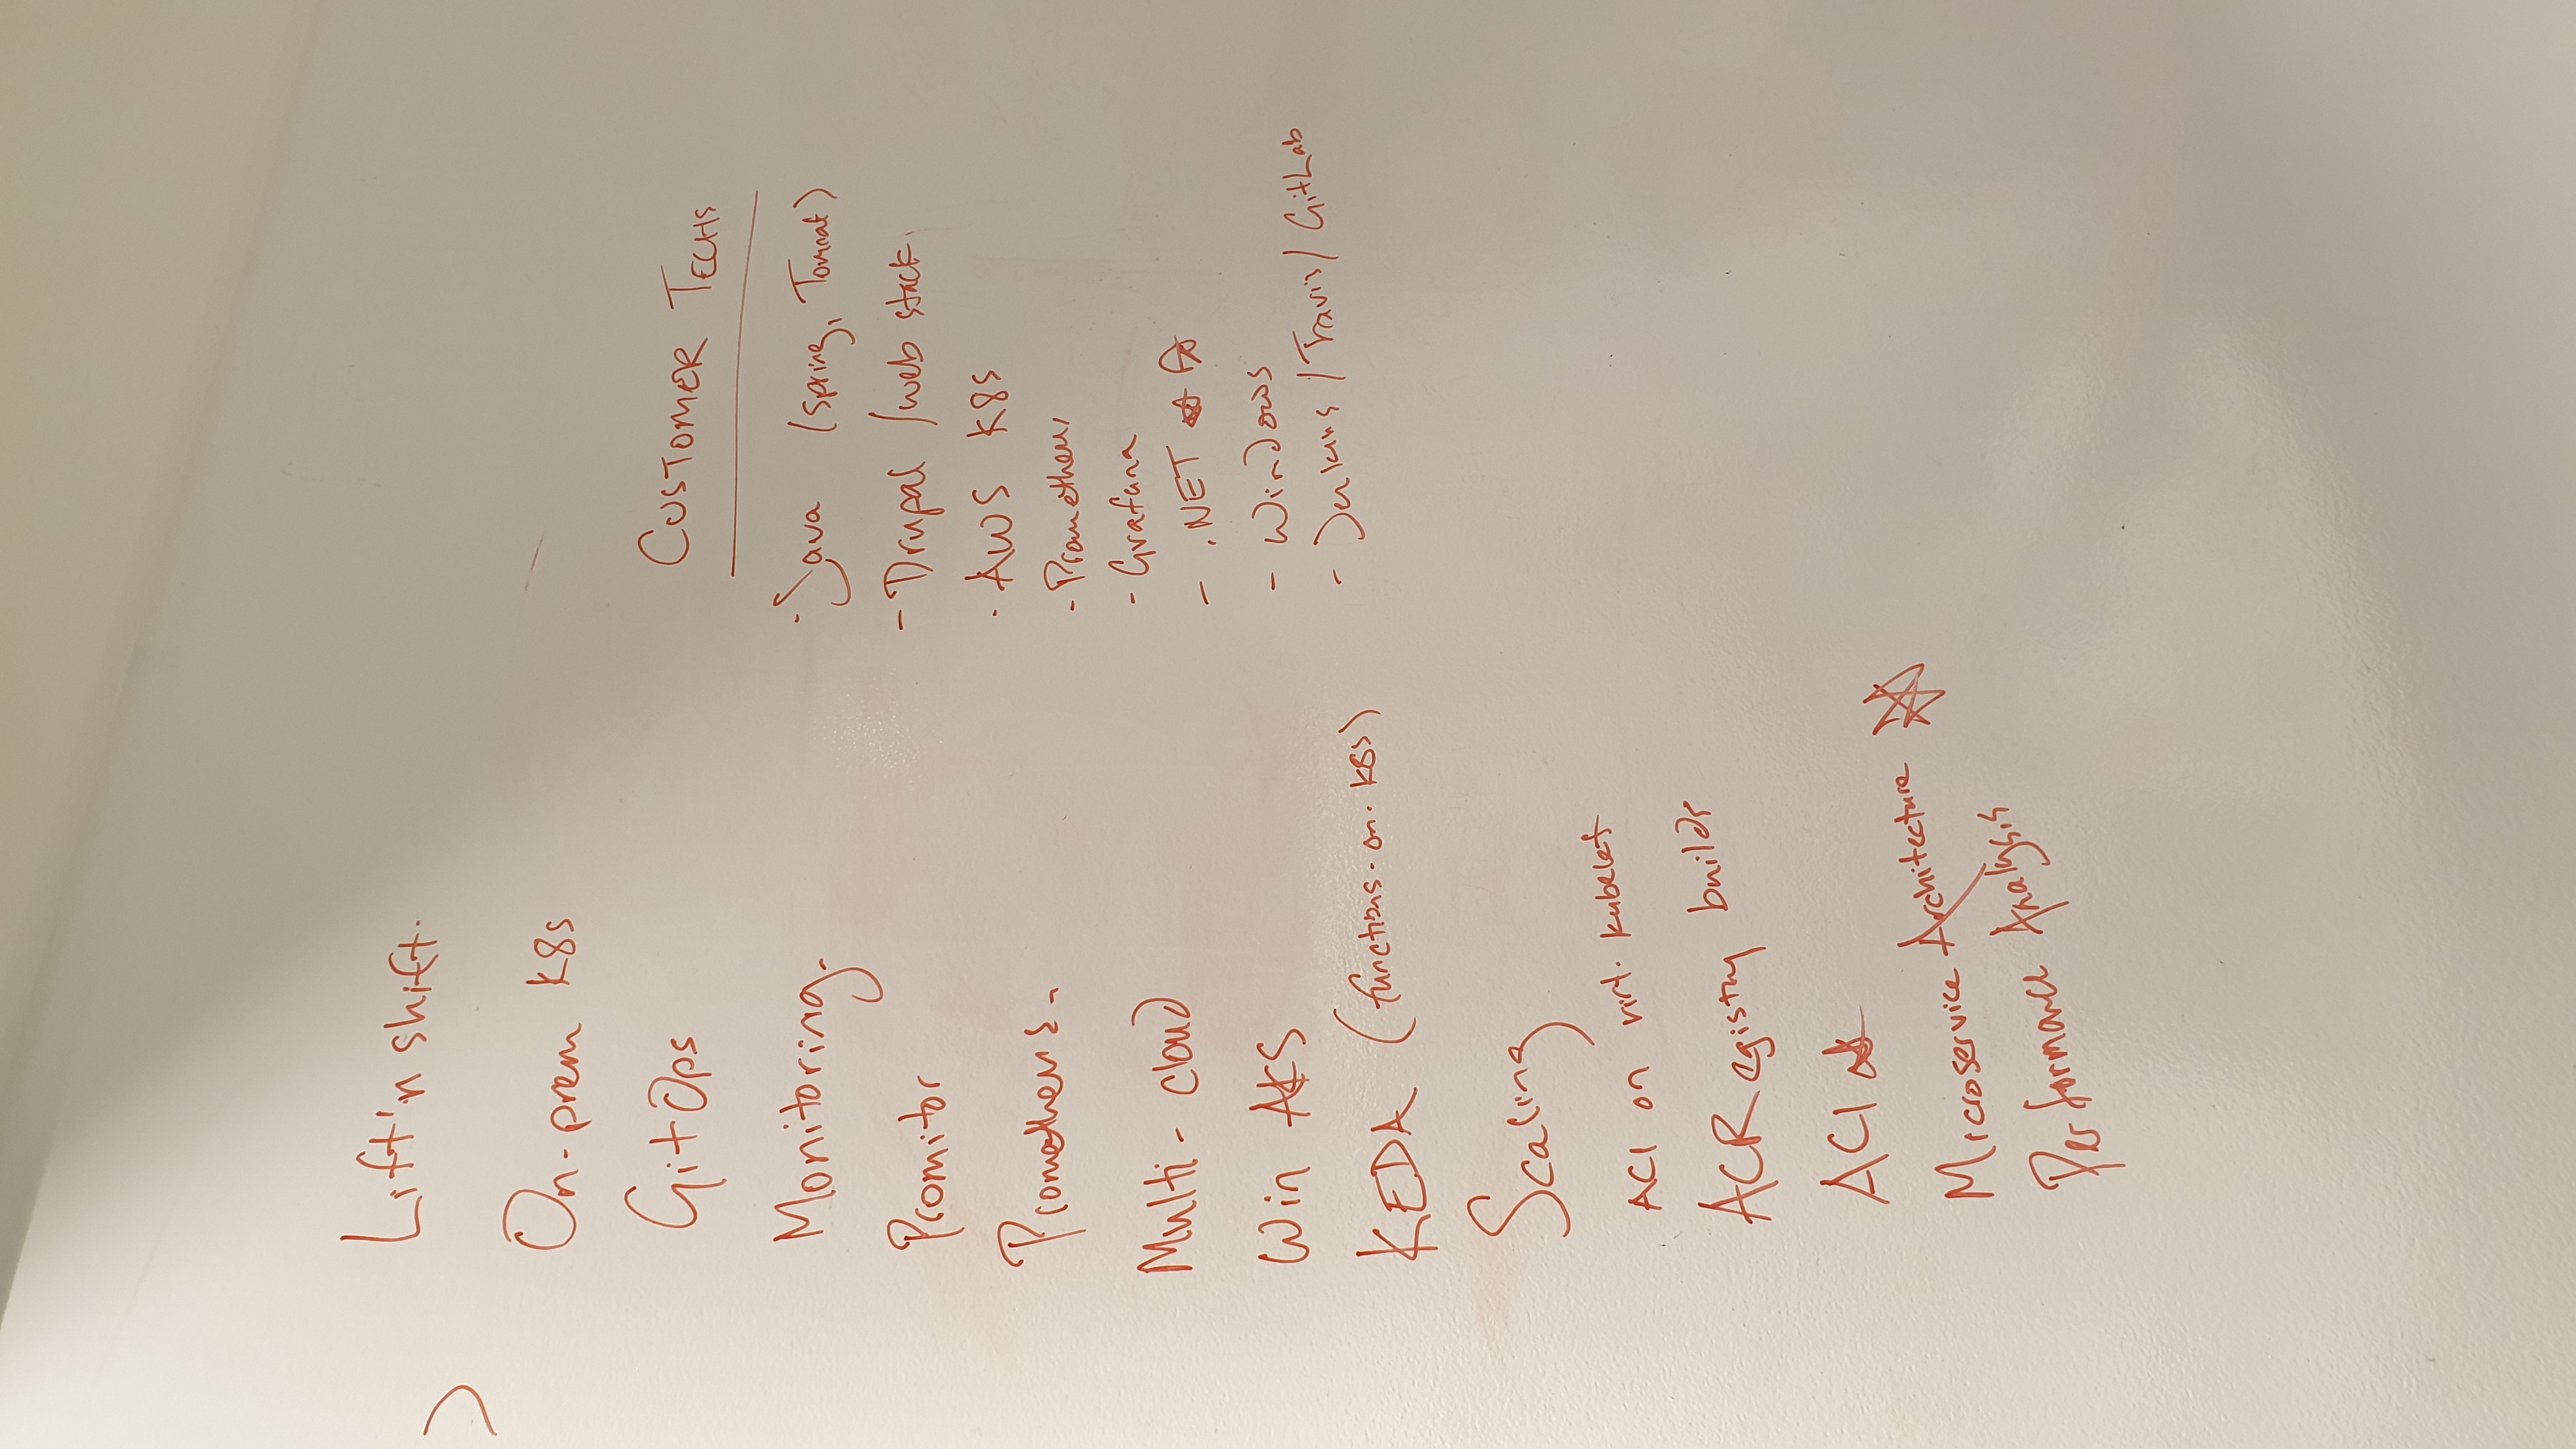 Lift'n shift.
On-prem K8s
GitOps
Monitoring.
Promitor
Prometheus-
Multi-cloud
Win AKS
KEDA (functions-on-k8s)
Scaling
ACI on virt. kubelet
ACRegistry builds
ACI
Microservice Architecture
Performance Analysis
CUSTOMER TECHS
- Java (Spring, Tomcat)
- Drupal /web stack.
- AWS K8s
- Prometheus
- Grafana
- .NET
- Windows
- Jenkins / Travis / GitLab